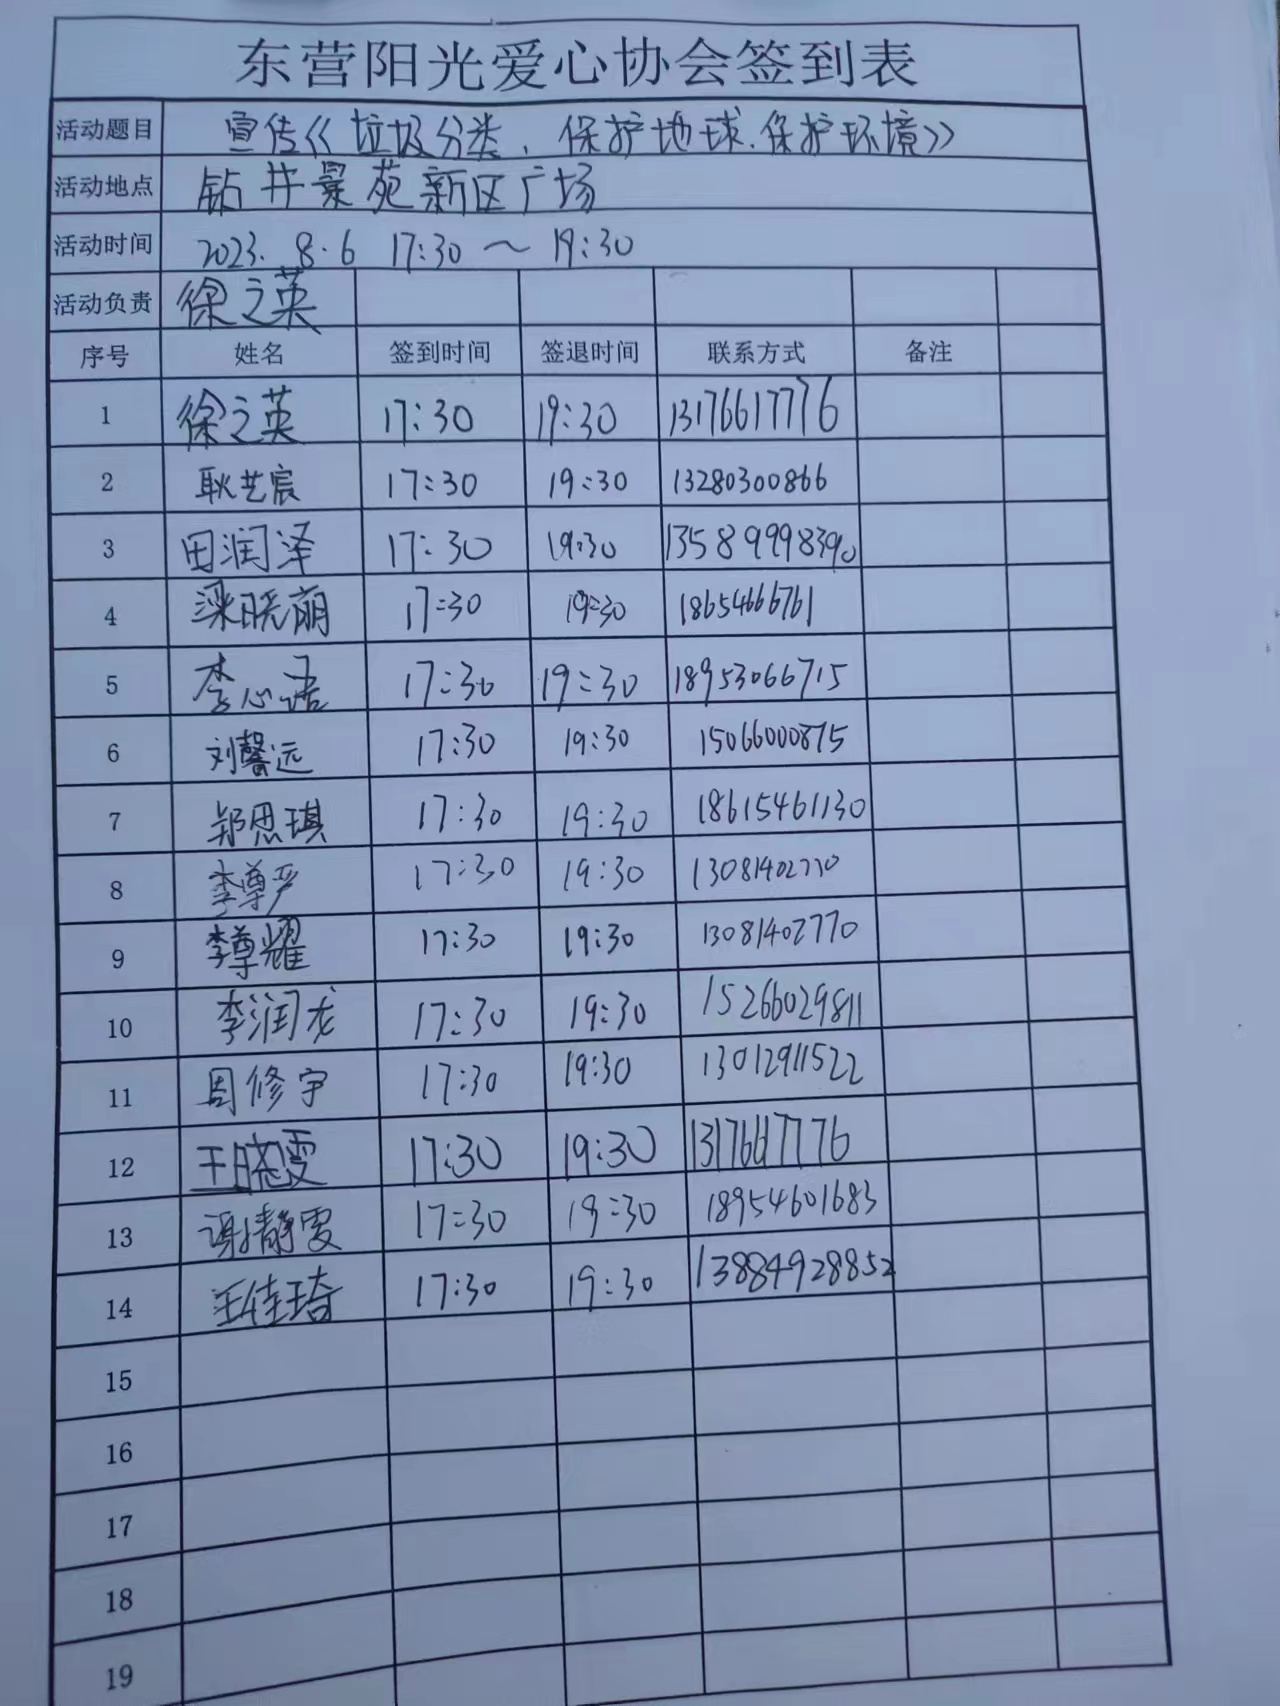 东营阳光爱心协会签到表
活动题目 宣传《垃圾分类、保护地球.保护环境》
活动地点 钻井景苑新区广场
活动时间 2023.8.6 17:30~19:30
活动负责 徐之英
序号 姓名 签到时间 签退时间 联系方式 备注
1 徐之英 17:30 19:30 13176617776
2 耿艺宸 17:30 19:30 13280300866
3 田润泽 17:30 19:30 13589998390
4 梁晓丽 17:30 19:30 18654666761
5 李心语 17:30 19:30 18953066715
6 刘馨远 17:30 19:30 15066000875
7 郑思琪 17:30 19:30 18615461130
8 李尊严 17:30 19:30 13081402770
9 李尊耀 17:30 19:30 13081402770
10 李润龙 17:30 19:30 15266029811
11 周修宇 17:30 19:30 13012911522
12 王晓雯 17:30 19:30 13176617776
13 谢静雯 17:30 19:30 18954601683
14 王佳琦 17:30 19:30 13884928852
15
16
17
18
19